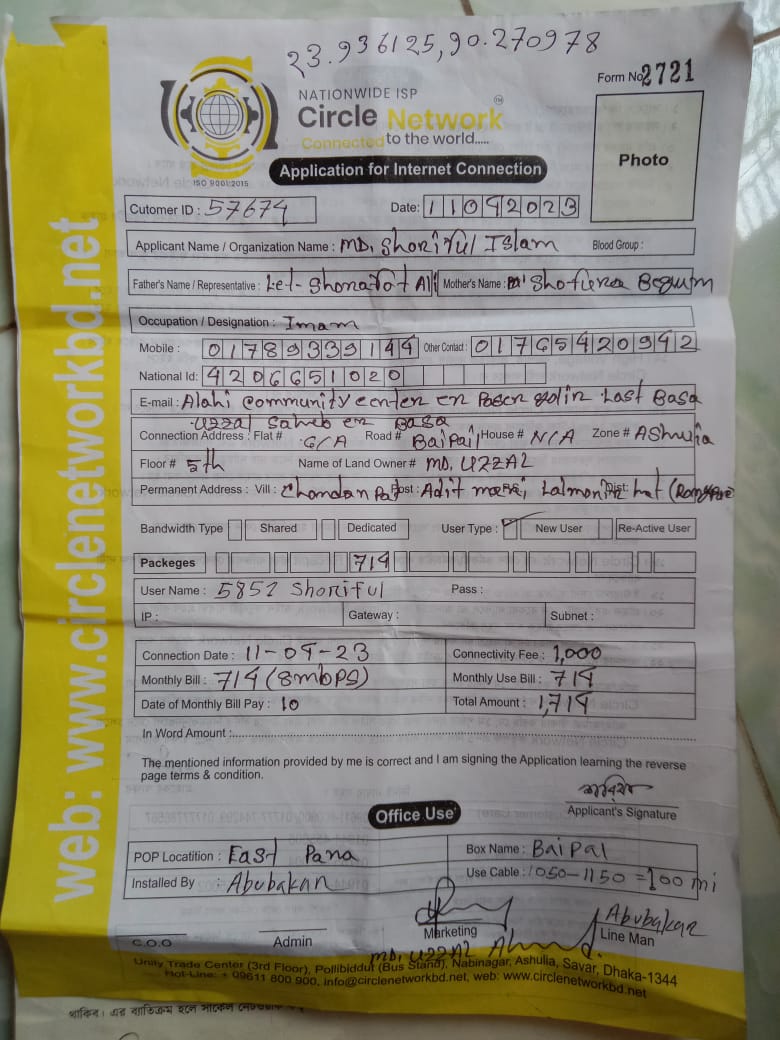 23.936125,90.270978
NATIONWIDE ISP
Circle Network
Connected to the world.....
ISO 9001:2015
Form No 2721
Photo
Application for Internet Connection
Cutomer ID : 57674 Date: 11042023
Applicant Name / Organization Name : MD. Shoriful Islam Blood Group :
Father's Name / Representative : Let- Shonafot Ali Mother's Name : Begum
Occupation / Designation : Imam
Mobile : 01789339144 Other Contact : 01765420942
National Id: 4206651020
E-mail : Alahi community center er Last Basa
Uzzal Saheb er Basa
Connection Address : Flat # G/A Road # Baipail House # N/A Zone # Ashulia
Floor # 5th Name of Land Owner # MD. UZZAL
Permanent Address : Vill : Chondan Pat Post : Adit mari, Dist: Lalmonir hat
Bandwidth Type Shared Dedicated User Type : New User Re-Active User
Packeges 714
User Name : 5852 Shoriful Pass :
IP : Gateway : Subnet :
Connection Date : 11-04-23 Connectivity Fee : 1,000
Monthly Bill : 714 (8mbps) Monthly Use Bill : 714
Date of Monthly Bill Pay : 10 Total Amount : 1,714
In Word Amount :
The mentioned information provided by me is correct and I am signing the Application learning the reverse
page terms & condition.
Applicant's Signature
Office Use
POP Locatition : East Para Box Name : Baipal
Installed By : Abubakar Use Cable : 1050-1150 = 100 mi
Abubakar
C.O.O Admin Marketing Line Man
MD. UZZAL
Unity Trade Center (3rd Floor), Pollibiddut (Bus Stand), Nabinagar, Ashulia, Savar, Dhaka-1344
Hot-Line: + 09611 800 900, info@circlenetworkbd.net, web: www.circlenetworkbd.net
web: www.circlenetworkbd.net